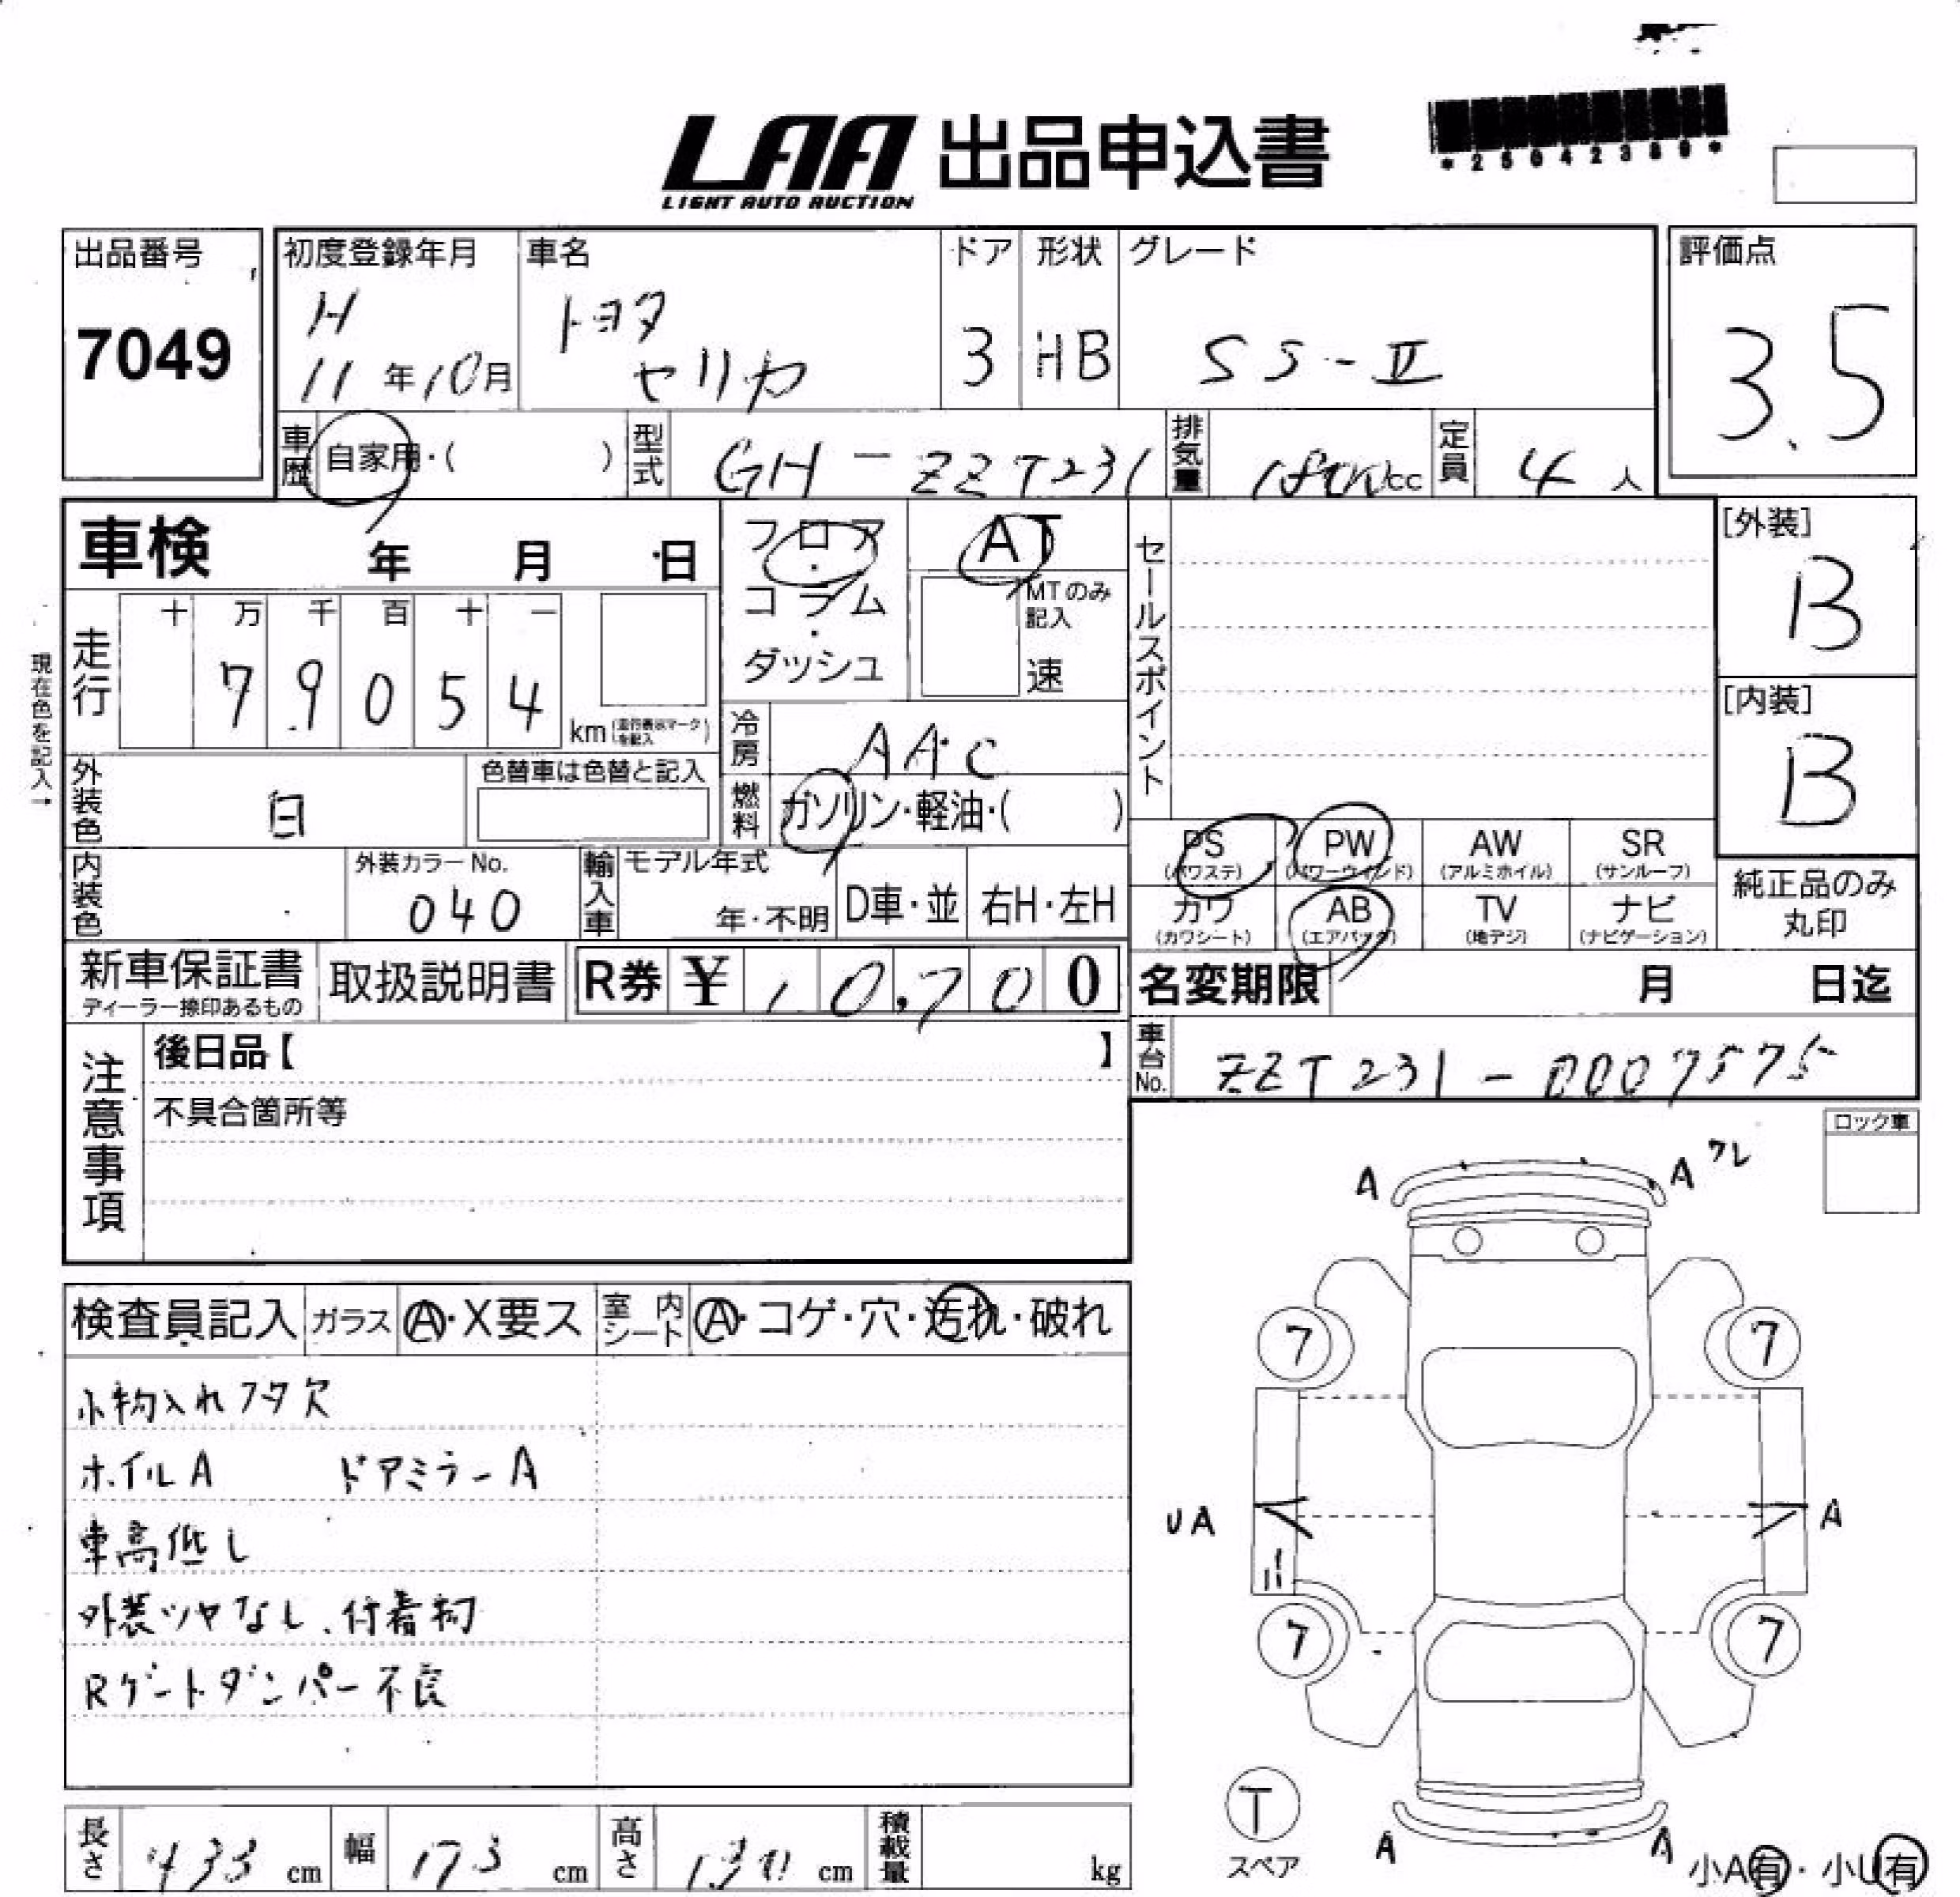 LAA 出品申込書
LIGHT AUTO AUCTION
*25042389*
出品番号
7049
初度登録年月
H
11年10月
車名
トヨタ
セリカ
ドア
3
形状
HB
グレード
SS-Ⅱ
評価点
3.5
車歴
自家用・( )
型式
GH-ZZT231
排気量
1800cc
定員
4人
車検 年 月 日
フロア・コラム・ダッシュ
AT
MTのみ記入
速
セールスポイント
[外装]
B
[内装]
B
現在色を記入→
走行
十 万 千 百 十 一
7 9 0 5 4
km(走行表示マークを記入)
冷房
AAC
外装色
白
色替車は色替と記入
燃料
ガソリン・軽油・( )
PS (パワステ)
PW (パワーウィンド)
AW (アルミホイル)
SR (サンルーフ)
カワ (カワシート)
AB (エアバッグ)
TV (地デジ)
ナビ (ナビゲーション)
純正品のみ
丸印
内装色
外装カラーNo.
040
輸入車
モデル年式
年・不明
D車・並
右H・左H
新車保証書
ディーラー捺印あるもの
取扱説明書
R券 ¥ 10,700
名変期限 月 日迄
注意事項
後日品【 】
不具合箇所等
車台No.
ZZT231-0007575
ロック車
検査員記入
ガラス
A・X要ス
室内シート
A・コゲ・穴・汚れ・破れ
小物入れフタ欠
ホイルA ドアミラーA
車高低し
外装ツヤなし、付着物
Rゲートダンパー不良
A
A ワレ
7
7
UA
A
7
7
T
スペア
A
A
小A有・小U有
長さ
433 cm
幅
173 cm
高さ
130 cm
積載量
kg